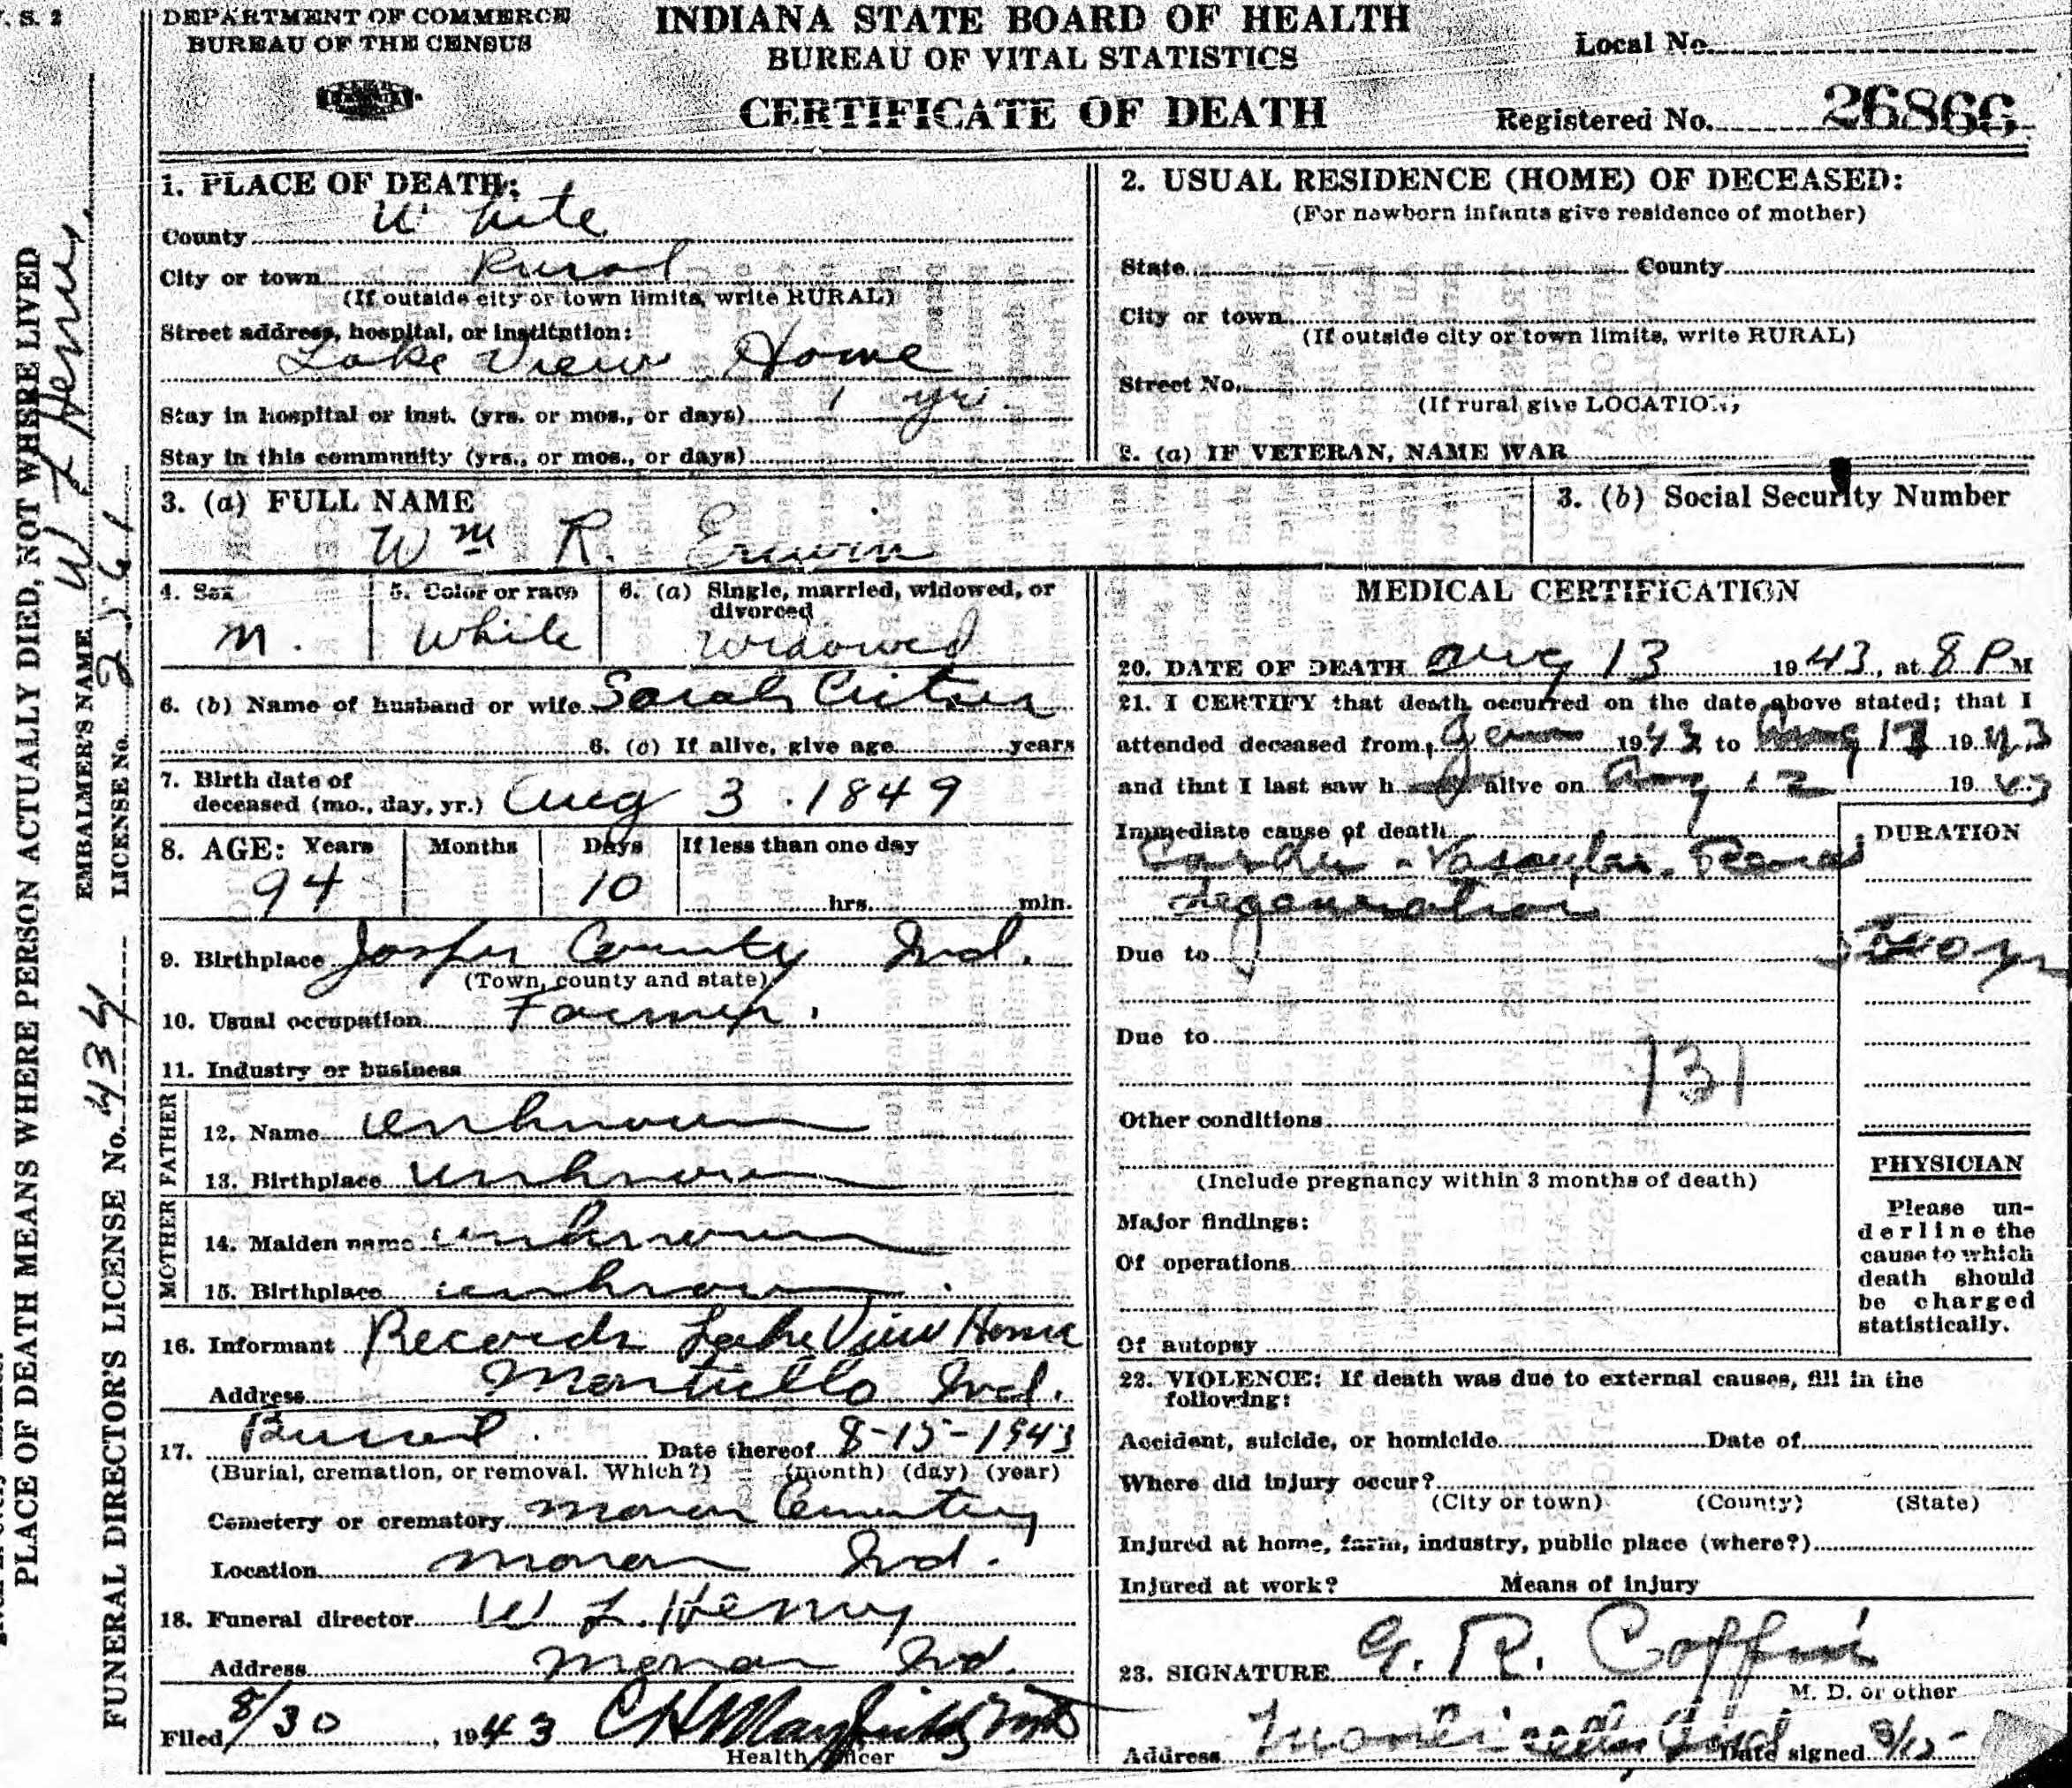 V. S. 2
DEPARTMENT OF COMMERCE
BUREAU OF THE CENSUS
INDIANA STATE BOARD OF HEALTH
BUREAU OF VITAL STATISTICS
CERTIFICATE OF DEATH
Local No.
Registered No. 26866
1. PLACE OF DEATH:
County White
City or town Rural
(If outside city or town limits, write RURAL)
Street address, hospital, or institution:
Lake View Home
Stay in hospital or inst. (yrs. or mos., or days) 1 yr.
Stay in this community (yrs., or mos., or days)
2. USUAL RESIDENCE (HOME) OF DECEASED:
(For newborn infants give residence of mother)
State County
City or town
(If outside city or town limits, write RURAL)
Street No.
(If rural give LOCATION)
2. (a) IF VETERAN, NAME WAR
3. (a) FULL NAME
Wm R. Erwin
3. (b) Social Security Number
4. Sex
M.
5. Color or race
White
6. (a) Single, married, widowed, or divorced
Widowed
6. (b) Name of husband or wife Sarah
6. (c) If alive, give age years
7. Birth date of
deceased (mo., day, yr.) Aug 3. 1849
8. AGE: Years Months Days If less than one day
94 10 hrs. min.
9. Birthplace Jasper County Ind.
(Town, county and state)
10. Usual occupation Farmer.
11. Industry or business
FATHER
12. Name unknown
13. Birthplace unknown
MOTHER
14. Maiden name unknown
15. Birthplace unknown
16. Informant Records Lake View Home
Address Monticello Ind.
17. Burial. Date thereof 8-15-1943
(Burial, cremation, or removal. Which?) (month) (day) (year)
Cemetery or crematory Monon Cemetery
Location Monon Ind.
18. Funeral director W L. Henry
Address Monon Ind.
Filed 8/30, 1943
Health Officer
MEDICAL CERTIFICATION
20. DATE OF DEATH Aug 13 1943, at 8 P M
21. I CERTIFY that death occurred on the date above stated; that I
attended deceased from 1943 to Aug 13 1943
and that I last saw h alive on Aug 12 1943
Immediate cause of death
Cardio-Vascular-Renal
degeneration
DURATION
Due to
Due to
131
Other conditions
(Include pregnancy within 3 months of death)
Major findings:
Of operations
Of autopsy
PHYSICIAN
Please un-
derline the
cause to which
death should
be charged
statistically.
22. VIOLENCE: If death was due to external causes, fill in the
following:
Accident, suicide, or homicide Date of
Where did injury occur?
(City or town) (County) (State)
Injured at home, farm, industry, public place (where?)
Injured at work? Means of injury
23. SIGNATURE G. R. Coffin
M. D. or other
Address Monticello, Ind Date signed
PLACE OF DEATH MEANS WHERE PERSON ACTUALLY DIED, NOT WHERE LIVED
EMBALMER'S NAME W L Henry
LICENSE No. 2561
FUNERAL DIRECTOR'S LICENSE No. 434